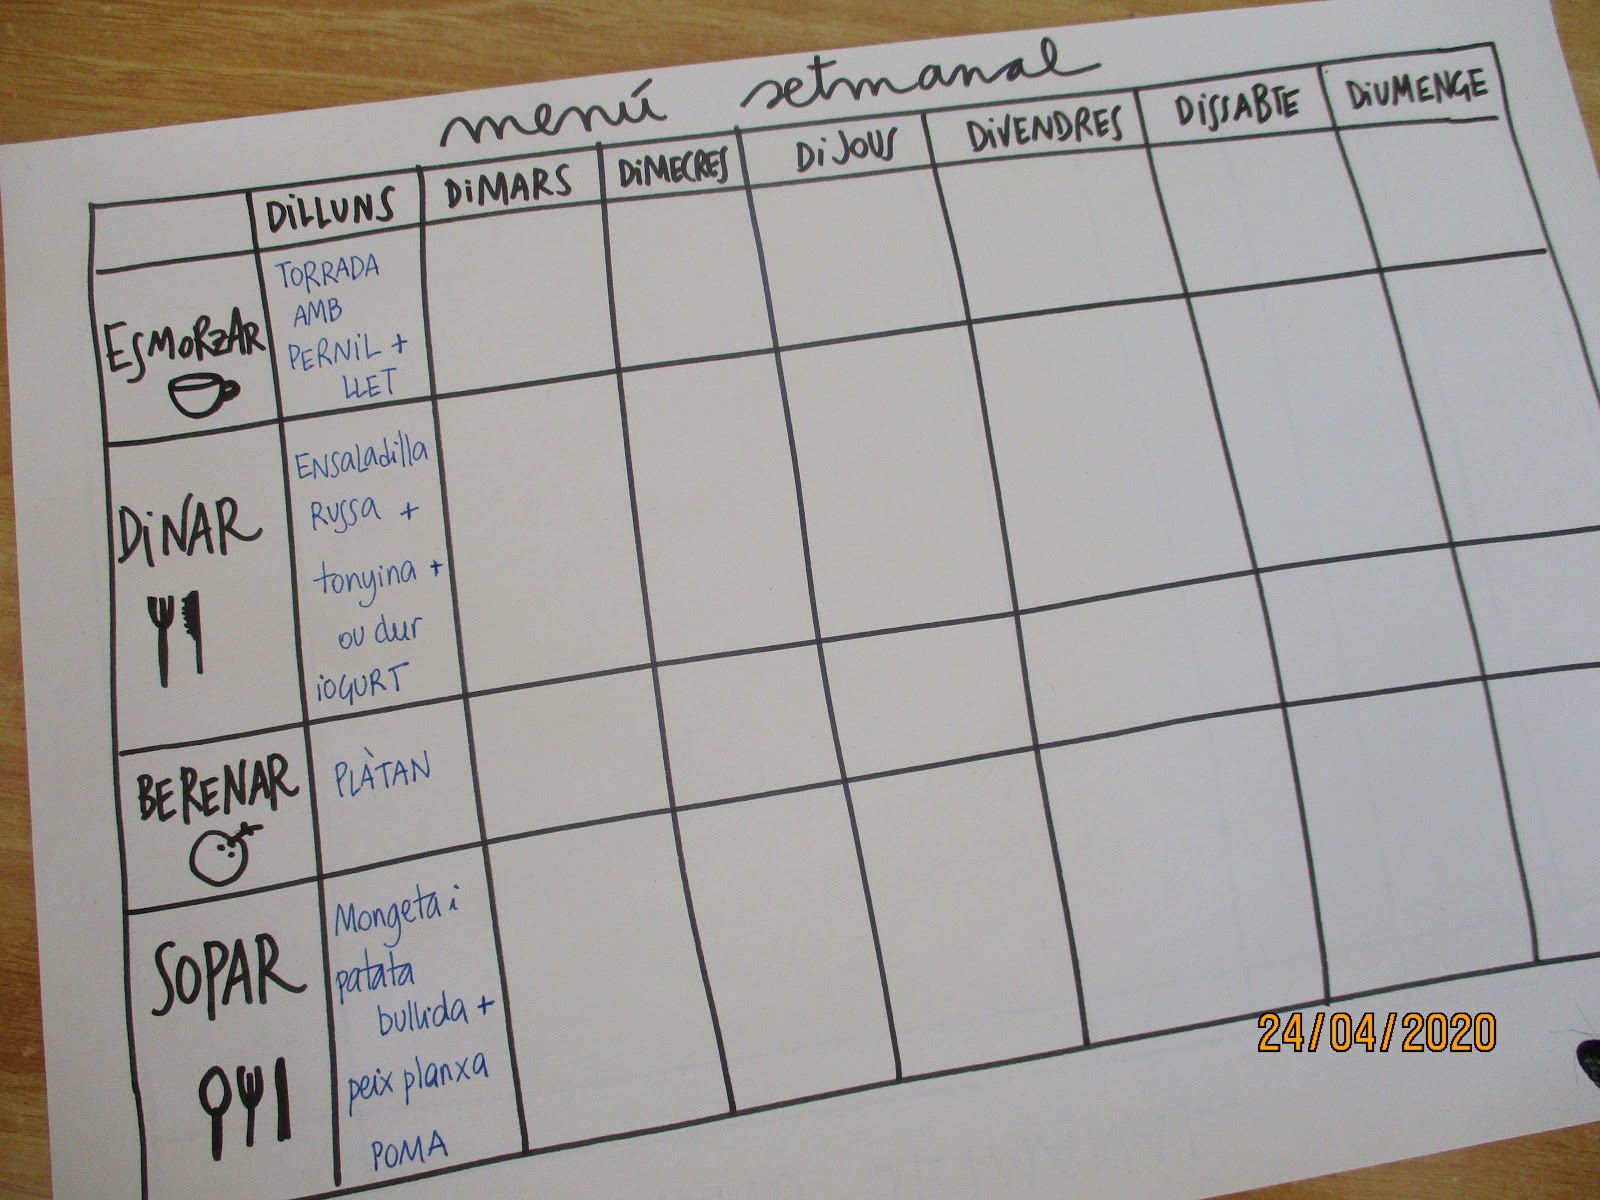 menú setmanal
DILLUNS DIMARS DIMECRES DIJOUS DIVENDRES DISSABTE DIUMENGE
ESMORZAR
TORRADA
AMB
PERNIL +
LLET
DINAR
ENSALADILLA
RUSSA +
tonyina +
ou dur
IOGURT
BERENAR
PLÀTAN
SOPAR
Mongeta i
patata
bullida +
peix planxa
POMA
24/04/2020